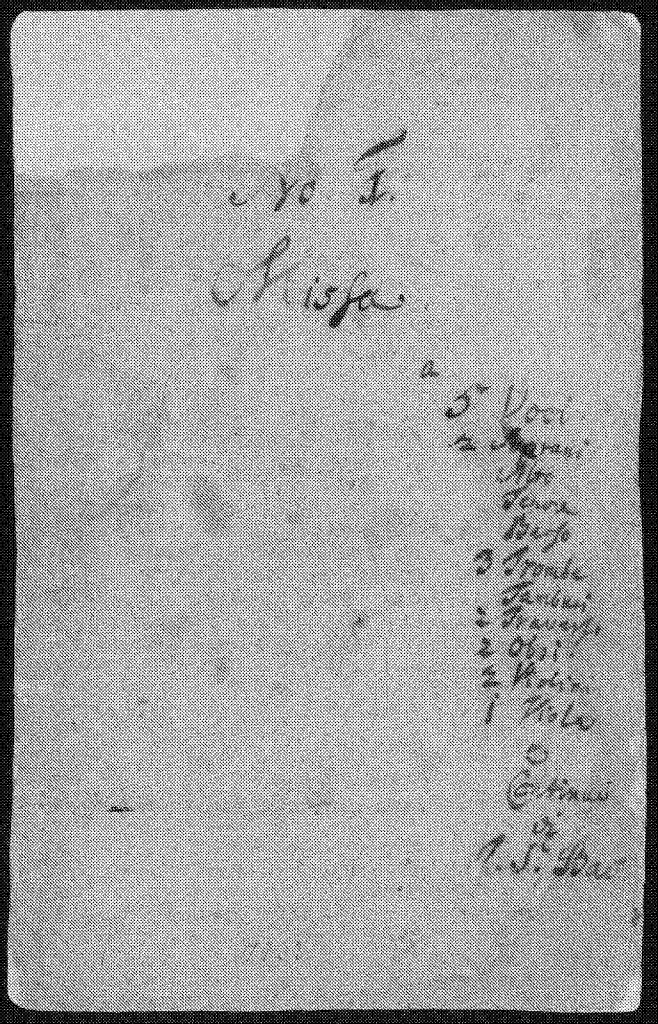 No. I.
Missa
a
5 Voci.
2 Soprani
Alto
Tenore
Basso
3 Trombe
Tamburi
2 Traversi
2 Oboi
2 Violini
1 Viola
e
Continuo
di
J. S. Bach